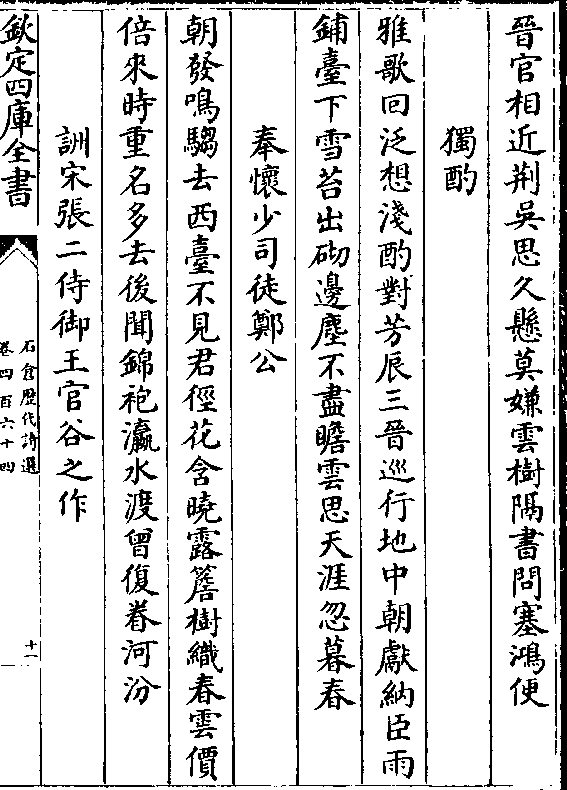 晉官相近荆吳思久懸莫嫌雲樹隔書問塞鴻便
獨酌
雅歌回泛想淺酌對芳辰三晉巡行地中朝獻納臣雨
鋪臺下雪苔出砌邊塵不盡瞻雲思天涯忽暮春
奉懷少司徒鄭公
朝發鳴騶去西臺不見君徑花含曉露簷樹織春雲價
倍來時重名多去後聞錦袍瀛水渡曾復眷河汾
詶宋張二侍御王官谷之作
欽定四庫全書
石倉歷代詩選
卷四百六十四
十一